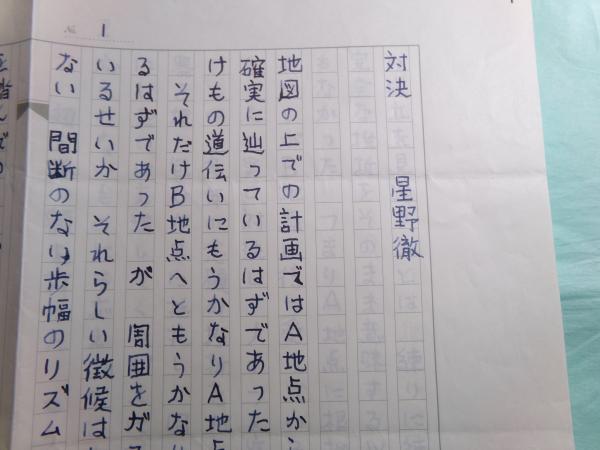 1
対決 星野徹
地図の上での計画ではA地点から
確実に辿っているはずであった
けもの道伝いにもうかなりA地点
それだけB地点へともうかな
るはずであった が 周囲をガ
いるせいか それらしい徴候は
ない 間断のない歩幅のリズム